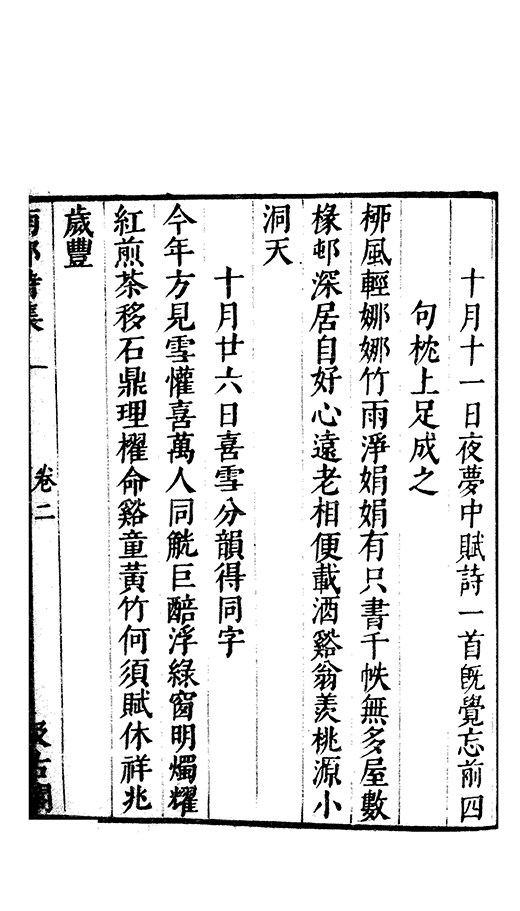 十月十一日夜夢中賦詩一首旣覺忘前四
句枕上足成之
栁風輕娜娜竹雨淨娟娟有只書千帙無多屋數
椽邨深居自好心遠老相便載酒谿翁羨桃源小
洞天
十月廿六日喜雪分韻得同字
今年方見雪懽喜萬人同觥巨醅浮綠窗明燭耀
紅煎茶移石鼎理櫂命谿童黃竹何須賦休祥兆
歲豐
集
卷二
汲古閣